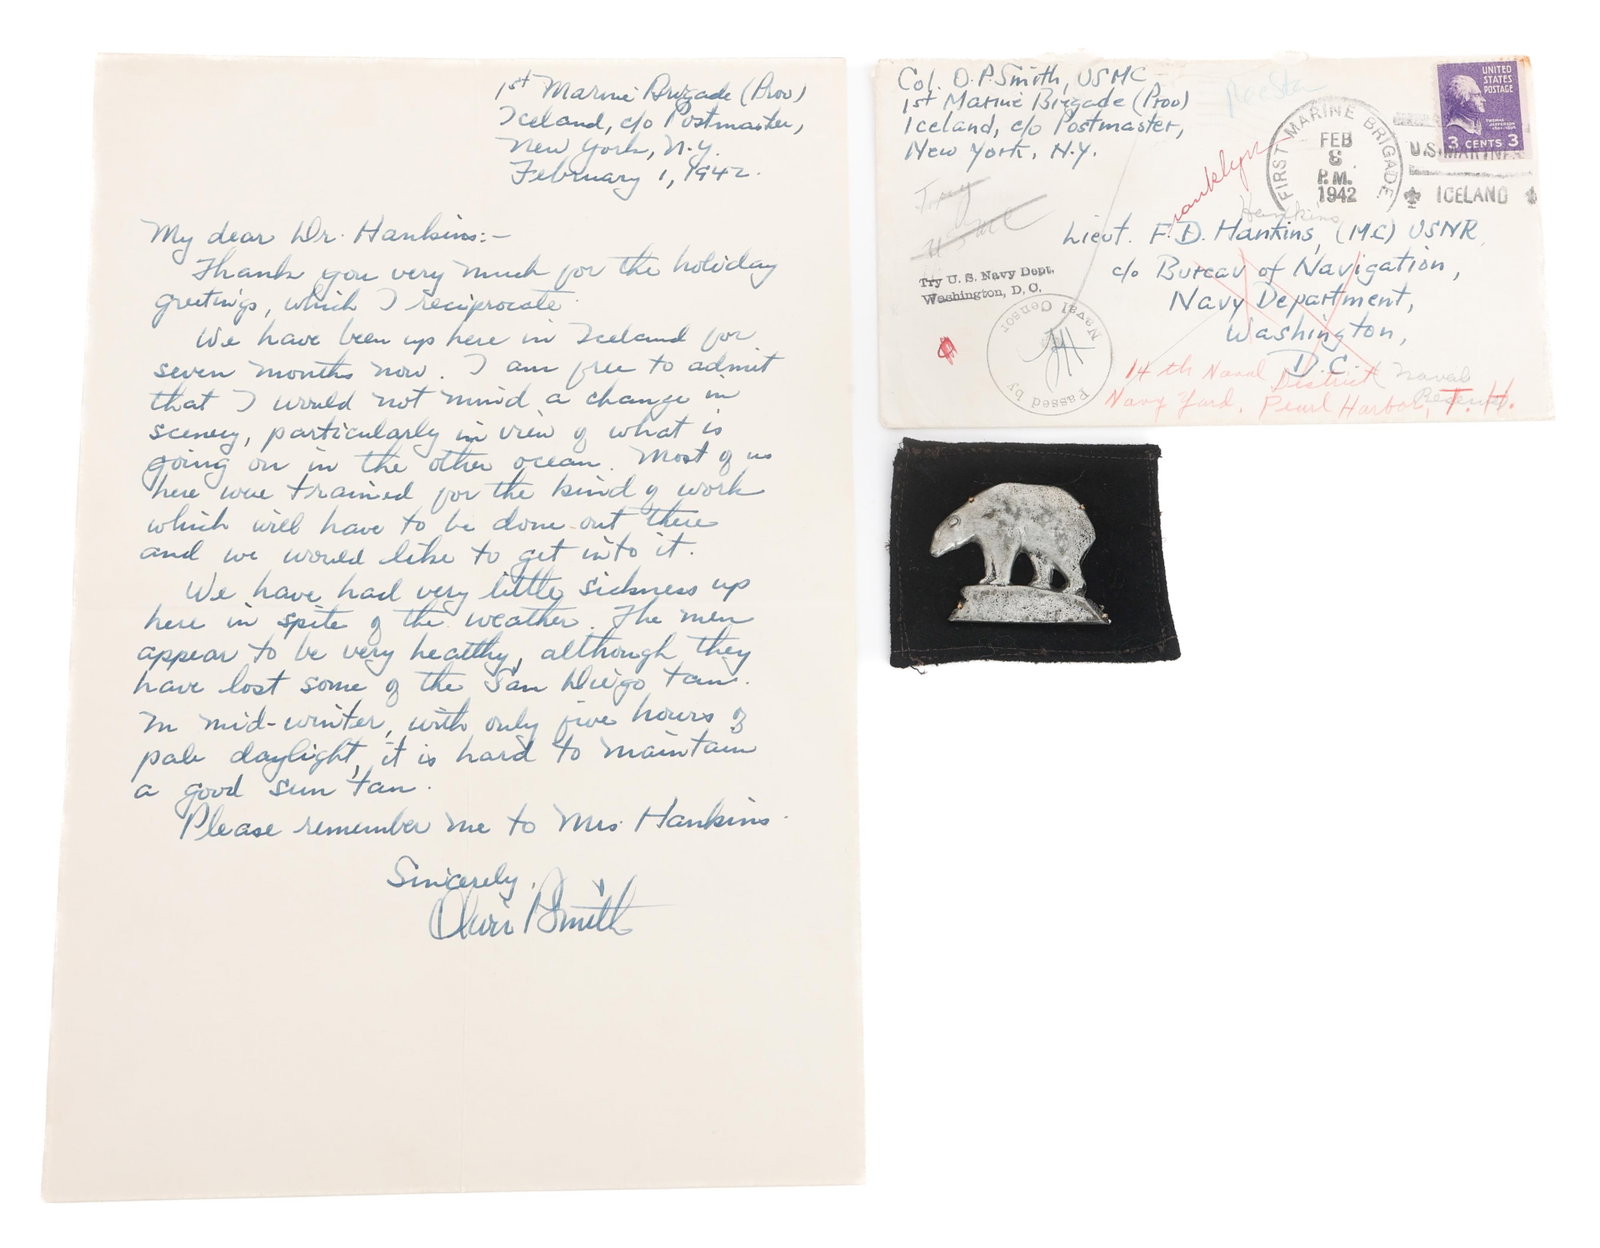 1st Marine Brigade (Prov)
Iceland, c/o Postmaster,
New York, N.Y.
February 1, 1942.
My dear Dr. Hankins:-
Thank you very much for the holiday
greetings, which I reciprocate.
We have been up here in Iceland for
seven months now. I am free to admit
that I would not mind a change in
scenery, particularly in view of what is
going on in the other ocean. Most of us
here were trained for the kind of work
which will have to be done out there
and we would like to get into it.
We have had very little sickness up
here in spite of the weather. The men
appear to be very healthy, although they
have lost some of the San Diego tan.
In mid-winter, with only five hours of
pale daylight, it is hard to maintain
a good sun tan.
Please remember me to Mrs. Hankins.
Sincerely,
Oliver P Smith
Col. O. P. Smith, USMC
1st Marine Brigade (Prov)
Iceland, c/o Postmaster,
New York, N.Y.
UNITED
STATES
POSTAGE
THOMAS
JEFFERSON
3 CENTS 3
FIRST MARINE BRIGADE
FEB
8
P.M.
1942
U.S. MARINES
ICELAND
Franklyn
Hankins
Try
USMC
Lieut. F. D. Hankins, (MC) USNR
c/o Bureau of Navigation,
Navy Department,
Washington,
D.C.
Try U. S. Navy Dept.
Washington, D. C.
Passed by
Naval Censor
14th Naval District
Navy Yard, Pearl Harbor, T. H.
Naval
Reserve